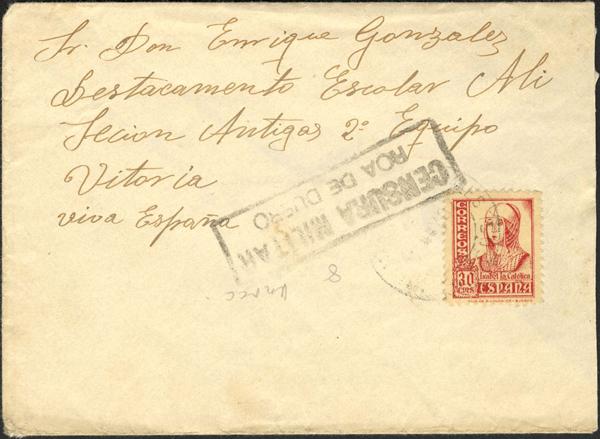 Sr. Don Enrique Gonzalez
Destacamento Escolar Mli
Secion Antigas 2º Equipo
Vitoria
viva España
CENSURA MILITAR
ROA DE DUERO
8
CORREOS
30
CTS
Isabel la Católica
ESPAÑA